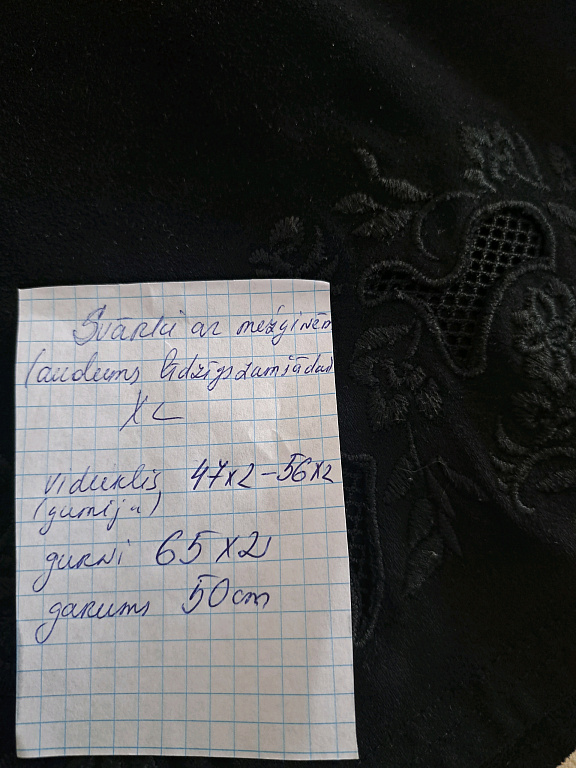 Svārki ar mežģinēm
(audums līdzīgs zamšādai
XL
viduklis 47x2-56x2
(gumija)
gurni 65x2
garums 50cm